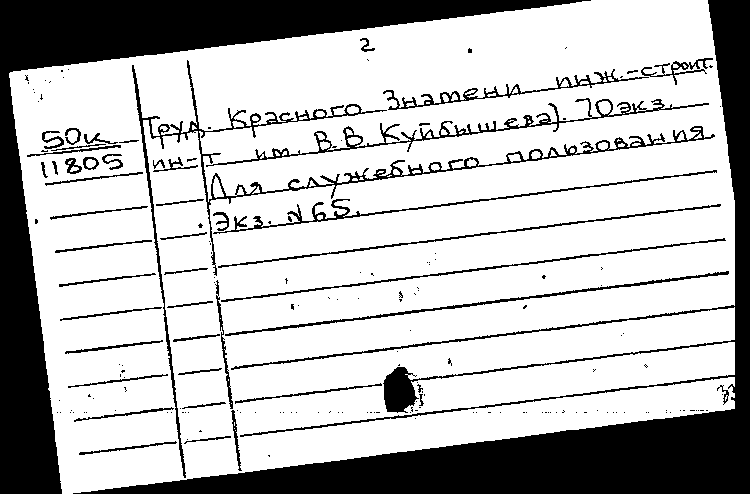 2
50к Труд. Красного Знамени инж-строит.
11805 ин-т им. В.В. Куйбышева). 70экз.
Для служебного пользования.
Экз. №65.